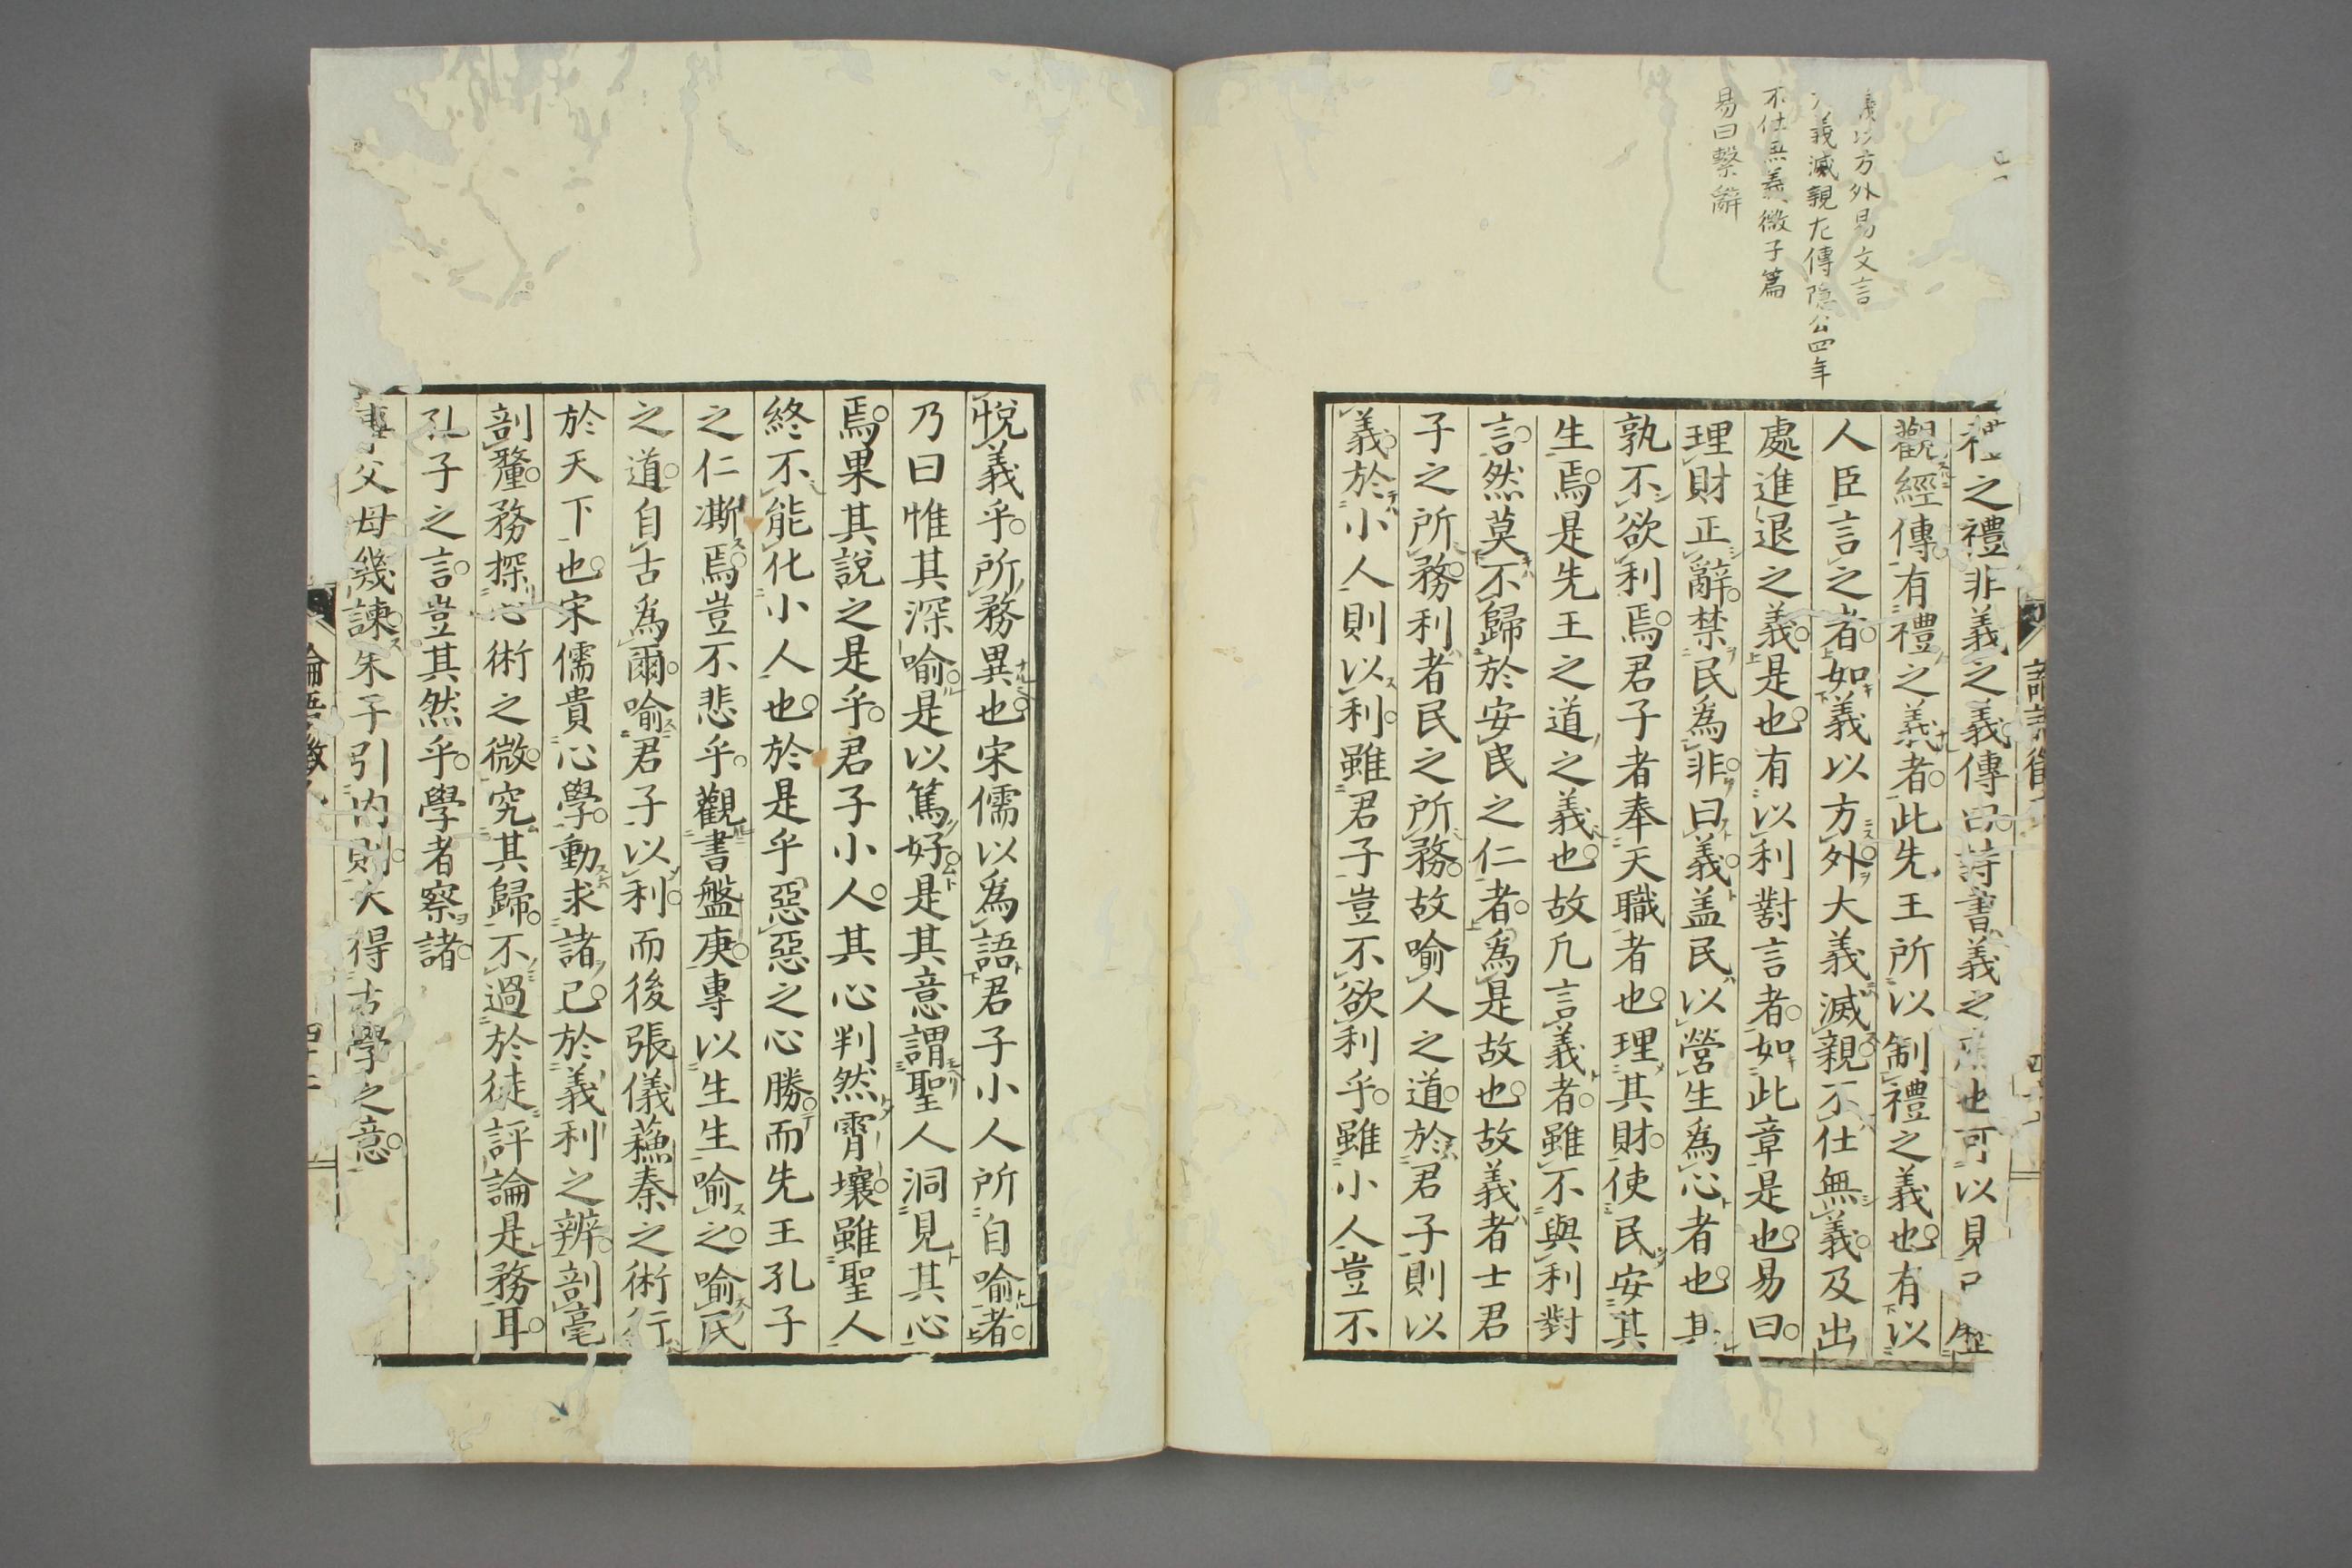 以方外易文言
義滅親左傳隠公四年
不仕無義微子篇
易曰繫辭
之禮非義之義傳曰詩書義之府也可以見已歷
觀經傳有禮之義者此先王所以制禮之義也有以
人臣言之者如義以方外大義滅親不仕無義及出
處進退之義是也有以利對言者如此章是也易曰
理財正辭禁民為非曰義盖民以營生為心者也其
孰不欲利焉君子者奉天職者也理其財使民安其
生焉是先王之道之義也故凡言義者雖不與利對
言然莫不歸於安民之仁者為是故也故義者士君
子之所務利者民之所務故喻人之道於君子則以
義於小人則以利雖君子豈不欲利乎雖小人豈不
悅義乎所務異也宋儒以為語君子小人所自喻者
乃曰惟其深喻是以篤好是其意謂聖人洞見其心
焉果其說之是乎君子小人其心判然霄壤雖聖人
終不能化小人也於是乎惡惡之心勝而先王孔子
之仁澌焉豈不悲乎觀書盤庚專以生生喻之喻民
之道自古為爾喻君子以利而後張儀蘓秦之術行
於天下也宋儒貴心學動求諸己於義利之辨剖毫
剖釐務探心術之微究其歸不過於徒評論是務耳
孔子之言豈其然乎學者察諸
事父母幾諫朱子引內則大得古學之意
論語徵